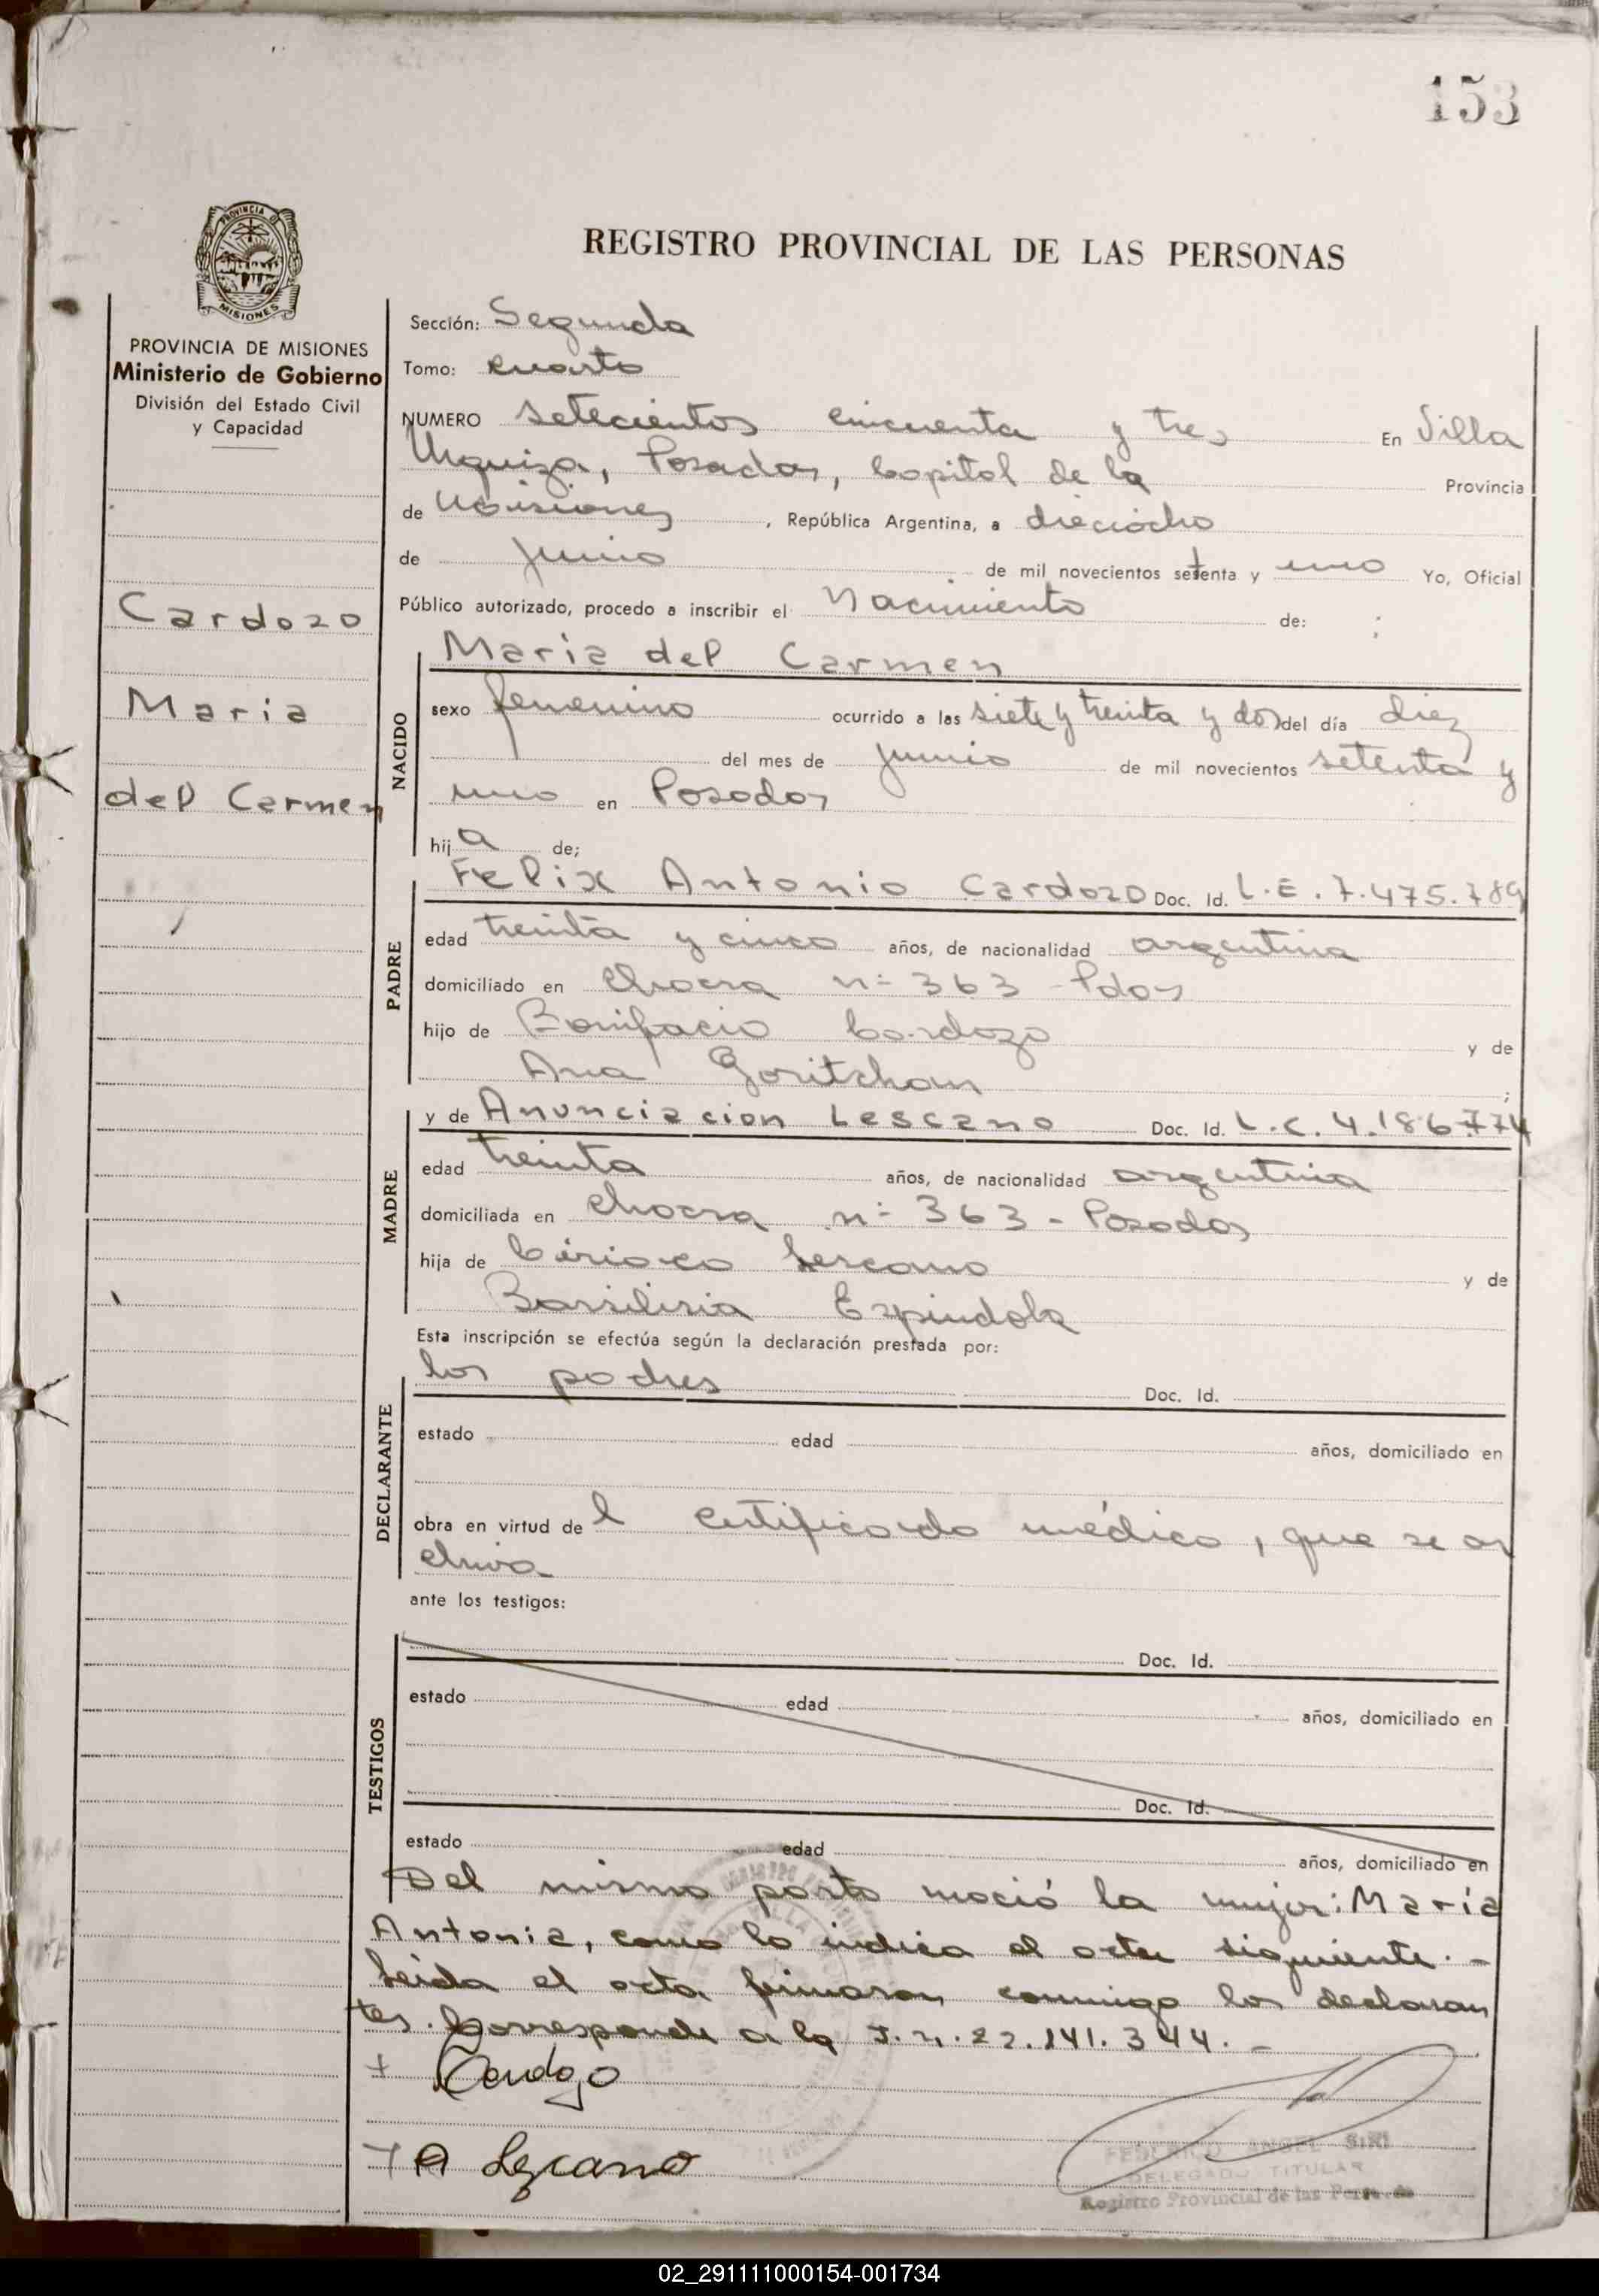 153
PROVINCIA DE
MISIONES
REGISTRO PROVINCIAL DE LAS PERSONAS
PROVINCIA DE MISIONES
Ministerio de Gobierno
División del Estado Civil
y Capacidad
Cardozo
Maria
del Carmen
Sección: Segunda
Tomo: cuarto
NUMERO setecientos cincuenta y tres En Villa
Urquiza, Posadas, Capital de la Provincia
de Misiones, República Argentina, a dieciocho
de junio de mil novecientos setenta y uno Yo, Oficial
Público autorizado, procedo a inscribir el Nacimiento de:
Maria del Carmen
NACIDO
sexo femenino ocurrido a las siete y treinta y dos del día diez
del mes de junio de mil novecientos setenta y
uno en Posadas
hija de;
Felix Antonio Cardozo Doc. Id. L.E. 7.475.789
PADRE
edad treinta y cinco años, de nacionalidad argentina
domiciliado en chacra n= 363 - Pdas
hijo de Bonifacio Cardozo y de
Ana Goritzhan;
y de Anunciacion Lescano Doc. Id. L.C. 4.186.774
MADRE
edad treinta años, de nacionalidad argentina
domiciliada en chacra n= 363 - Posadas
hija de Ciriaco Lescano y de
Basilisia Espindola
Esta inscripción se efectúa según la declaración prestada por:
los padres Doc. Id.
DECLARANTE
estado edad años, domiciliado en
obra en virtud del certificado médico, que se ar
chiva
ante los testigos:
Doc. Id.
TESTIGOS
estado edad años, domiciliado en
Doc. Id.
estado edad años, domiciliado en
Del mismo parto nació la mujer: María
Antonia, como lo indica el acta siguiente. -
Leida el acta firmaron conmigo los declaran
tes. Corresponde a la I.n. 22.141.344. -
Cardozo
A Lezcano
FEDERICO ANGEL SIRI
DELEGADO TITULAR
Registro Provincial de las Personas
02_291111000154-001734